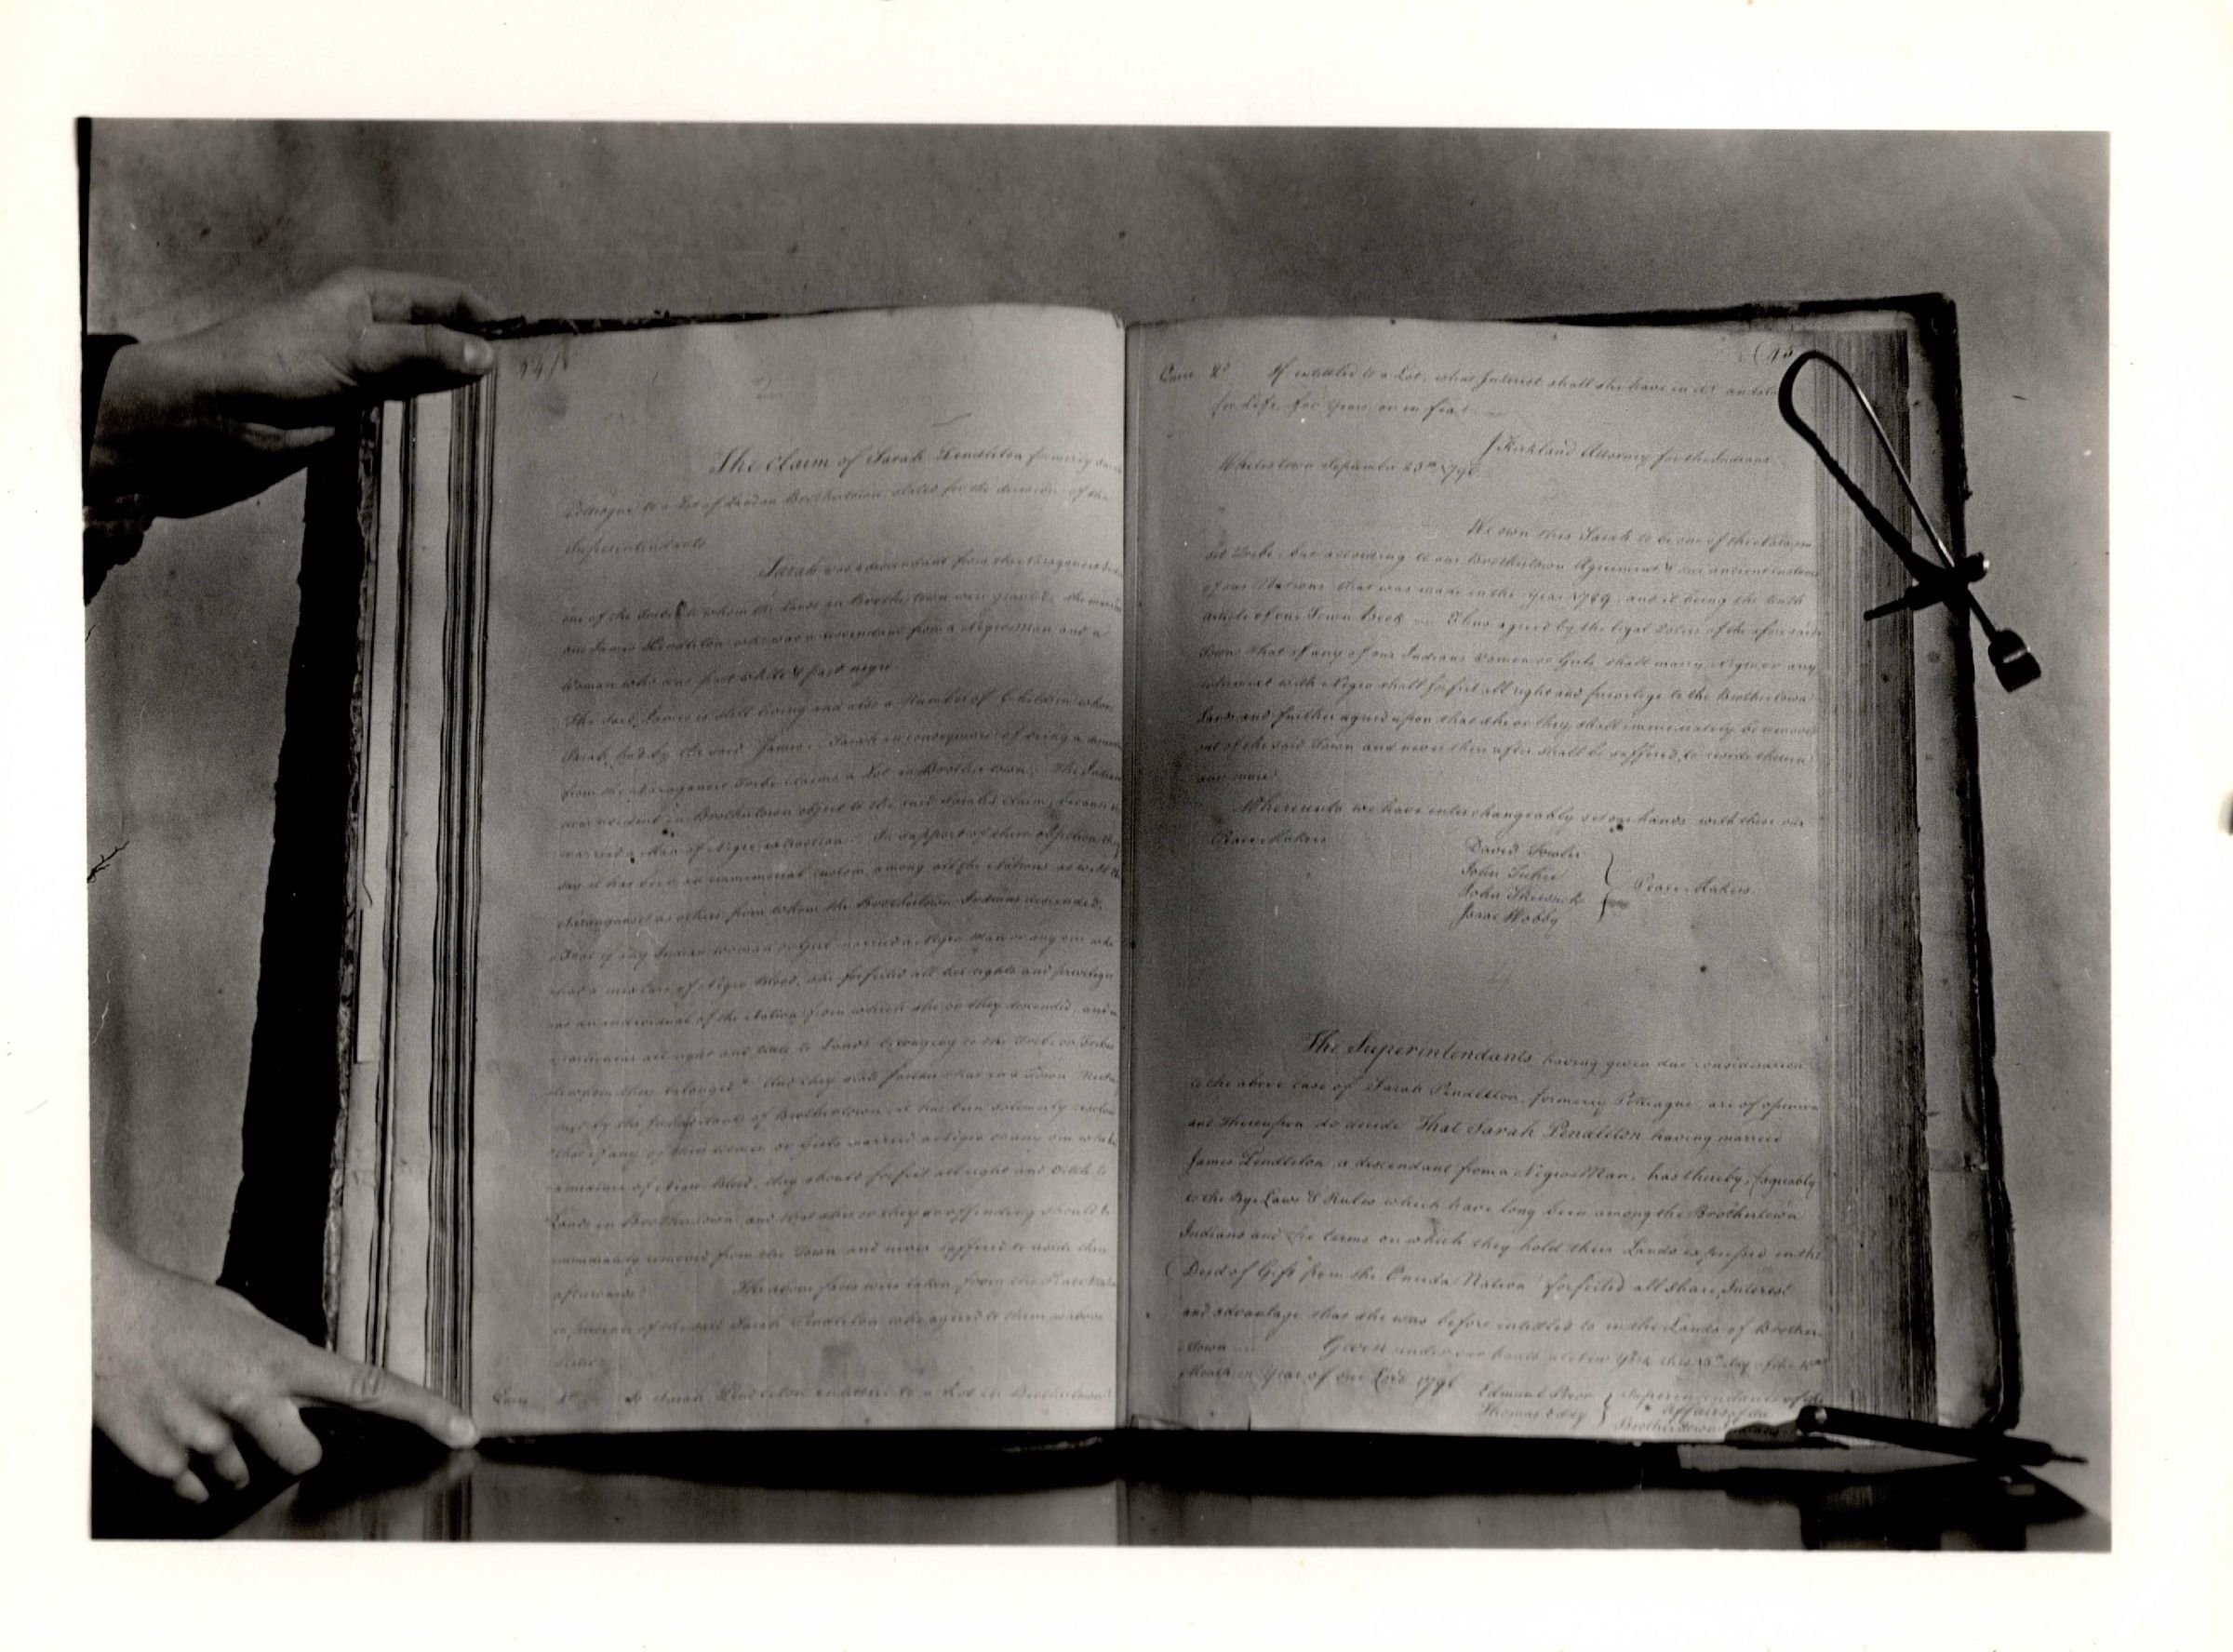 2
The claim of Sarah Pendleton formerly
Pollogue to a Lot of Land in Brothertown, stated for the decision of the
Superintendants
Sarah was a descendant from the Naraganset
one of the Tribes to whom the Lands in Brothertown were granted. She married
one James Pendleton who was a descendant from a Negro Man and a
woman who was part white & part negro
The said James is still living and also a Number of Children whom
Sarah had by the said James. Sarah in consequence of being a
from the Naraganset Tribe claims a Lot in Brothertown. The Indians
now resident in Brothertown object to the said Sarah's claim, because
married a Man of Negro extraction. In support of them objection they
say it has been an immemorial custom among all the Nations as well the
Naraganset as others from whom the Brothertown Indians descended,
That if any Indian woman or Girl married a Negro Man or any one who
had a mixture of Negro Blood, she forfeited all her rights and privileges
as an individual of the Nation from which she or they descended, and
all right and title to Lands belonging to the Tribe or Tribes
to whom they belonged. And they state further that in a Town
by the Inhabitants of Brothertown it has been solemnly
that if any of their women or Girls married a Negro or any one who
a mixture of Negro Blood, they should forfeit all right and Title to
Lands in Brothertown and that she or they so offending should be
immediately removed from the Town and never suffered to reside there
afterwards. The above facts were taken from the Peace Makers
in presence of the said Sarah Pendleton who agreed to them as above
Is Sarah Pendleton entitled to a Lot in Brothertown
2d If entitled to a Lot, what Interest shall she have in it
for Life, for Years, or in fee?
J Kirkland Attorney for the Indians
Whitestown September 25th 1796
We own this Sarah to be one of the
Tribe, but according to our Brothertown Agreement & our ancient customs
of our Nations that was made in the year 1789 and it being the tenth
article of our Town Book Thus agreed by the legal Voters of the aforesaid
Town That if any of our Indians Women or Girls shall marry Negro or any
mixtured with Negro shall forfeit all right and privilege to the Brothertown
Lands and further agreed upon that she or they shall immediately be removed
out of the said Town and never there after shall be suffered to reside therein
any more
Whereunto we have interchangeably set our hands with these our
Peace Makers
David Fowler
John Tuhie
John Skeesuck
Isaac Wobby
Peace-Makers
The Superintendants having given due consideration
to the above case of Sarah Pendleton, formerly Pollogue, are of opinion
and thereupon do decide That Sarah Pendleton having married
James Pendleton a descendant from a Negro Man, has thereby, (agreably
to the Bye Laws & Rules which have long been among the Brothertown
Indians and the terms on which they hold their Lands expressed in the
Deed of Gift from the Oneida Nation) forfeited all share, Interest
and advantage that she was before entitled to in the Lands of Brother-
town Given under our hands at New York this day of the 10th
Month in Year of our Lord 1796
Edmund Prior
Thomas Eddy
Superintendants of the
affairs of the
Brothertown Indians